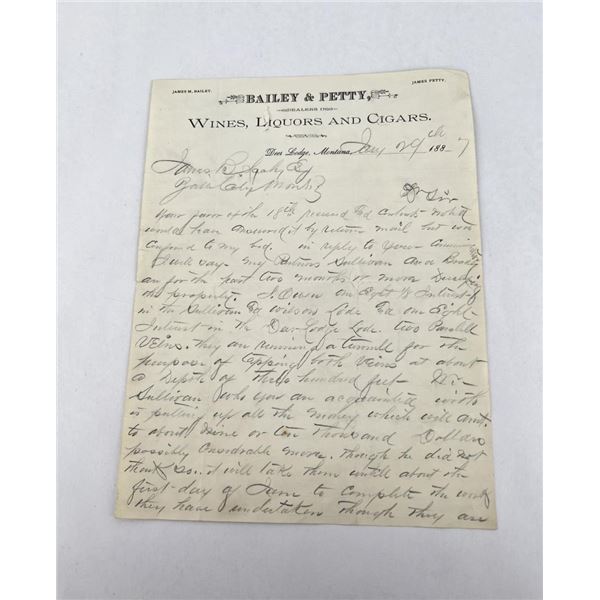 JAMES M. BAILEY. JAMES PETTY.
BAILEY & PETTY,
DEALERS IN
WINES, LIQUORS AND CIGARS.
Deer Lodge, Montana, Jany 29th 1887
James B.
City
Dr Sir
Your favor of the 18th received
would have answered it by return mail but was
confined to my bed. in reply to your
I will say. My Partners Sullivan and
are for the past two months or more
the property. I own one Eight Interest
in the Sullivan & Wilson Lode & one Eight
Interest in the Deer Lodge Lode. two Parallel
Veins. they are running a tunnell for the
purpose of tapping both Veins at about
a Depth of three hundred feet
Sullivan who you are acquainted with
is putting up all the money which will amt.
to about Nine or ten Thousand Dollars
possibly more. though he did not
think so. it will take them untill about the
first day of June to complete the work
they have undertaken though they are